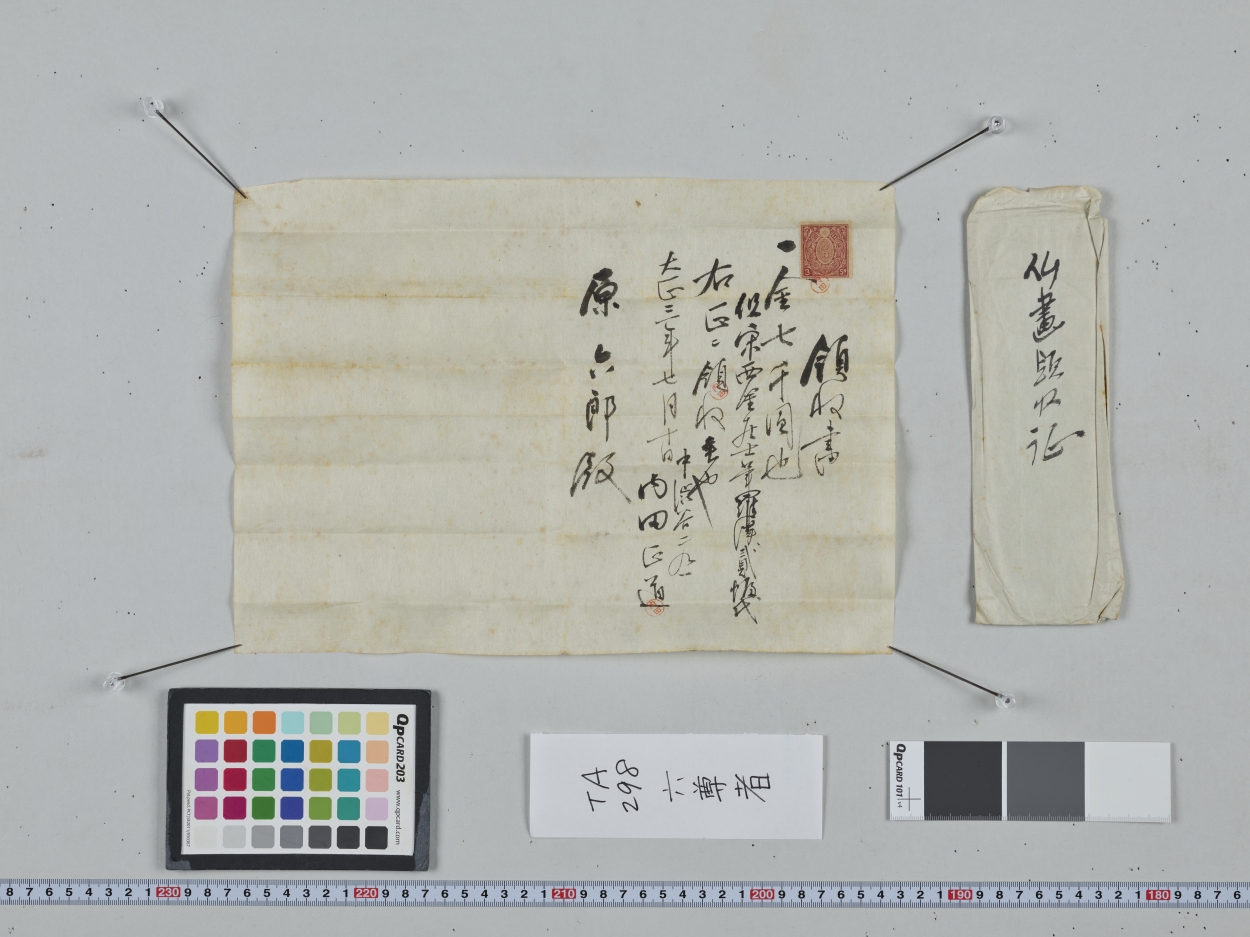 領收書
一金七千圓也
但宋西金居士筆羅漢貳幅代
右正ニ領收候也
大正三年七月十日
中渋谷二九
内田正道
原六郎殿
仏畫領収证
TA
298
六尊者
QPCARD 203
www.qpcard.com
QPCARD 101 v4
8 7 6 5 4 3 2 1 230 9 8 7 6 5 4 3 2 1 220 9 8 7 6 5 4 3 2 1 210 9 8 7 6 5 4 3 2 1 200 9 8 7 6 5 4 3 2 1 190 9 8 7 6 5 4 3 2 1 180 9 8 7 6